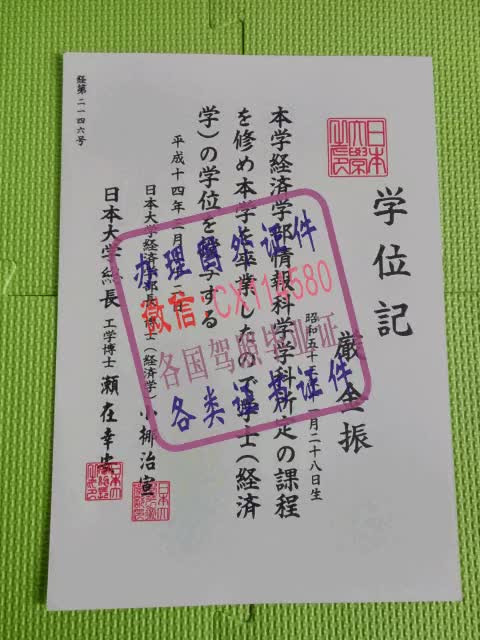 日本
大學
之印
学位記
厳 振
昭和五十 月二十八日生
本学経済学部情報科学学科所定の課程
を修め本学を卒業したので学士(経済
学)の学位を授与する
平成十四年 月
日本大学経済学部長 博士(経済学) 小 治宣
日本大学総長 工学博士 瀬在幸安
経第二一四六号
办理国外证件
微信:CX114580
各国驾照毕业证
各类证书证件